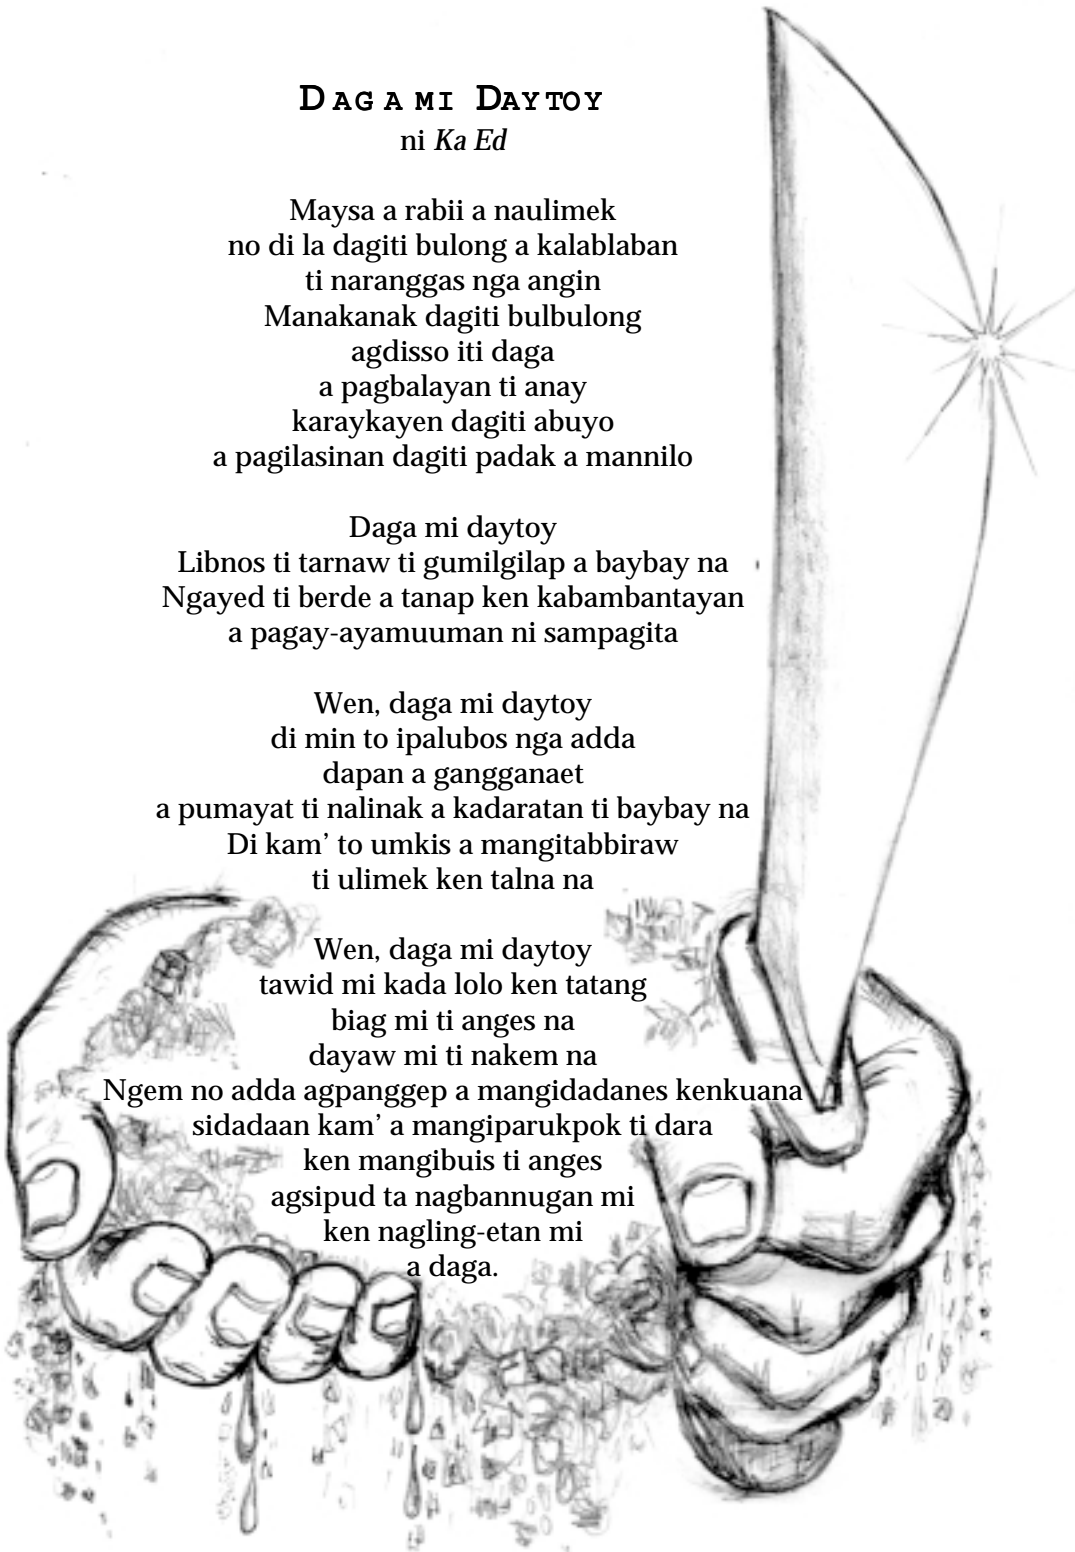 DAGA MI DAYTOY
ni Ka Ed
Maysa a rabii a naulimek
no di la dagiti bulong a kalablaban
ti naranggas nga angin
Manakanak dagiti bulbulong
agdisso iti daga
a pagbalayan ti anay
karaykayen dagiti abuyo
a pagilasinan dagiti padak a mannilo
Daga mi daytoy
Libnos ti tarnaw ti gumilgilap a baybay na
Ngayed ti berde a tanap ken kabambantayan
a pagay-ayamuuman ni sampagita
Wen, daga mi daytoy
di min to ipalubos nga adda
dapan a gangganaet
a pumayat ti nalinak a kadaratan ti baybay na
Di kam’ to umkis a mangitabbiraw
ti ulimek ken talna na
Wen, daga mi daytoy
tawid mi kada lolo ken tatang
biag mi ti anges na
dayaw mi ti nakem na
Ngem no adda agpanggep a mangidadanes kenkuana
sidadaan kam’ a mangiparukpok ti dara
ken mangibuis ti anges
agsipud ta nagbannugan mi
ken nagling-etan mi
a daga.